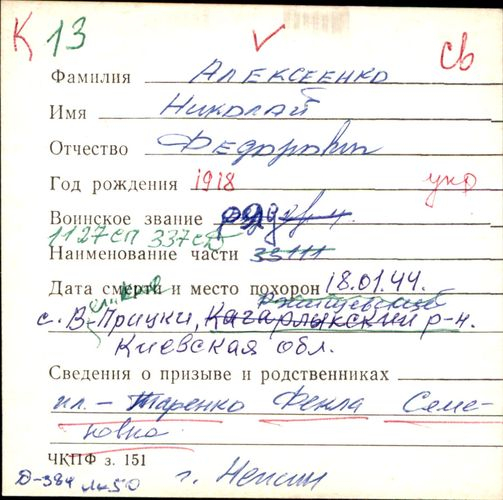 К 13 св
Фамилия Алексеенко
Имя Николай
Отчество Федорович
Год рождения 1918 укр
Воинское звание
1127 сп 337 сд
Наименование части 35111
Дата смерти и место похорон 18.01.44.
Ржищевский
с. В-Прицки, Кагарлыкский р-н.
Киевская обл.
Сведения о призыве и родственниках
пл. - Таренко Фекла Семе-
новна
ЧКПФ з. 151
г. Нежин